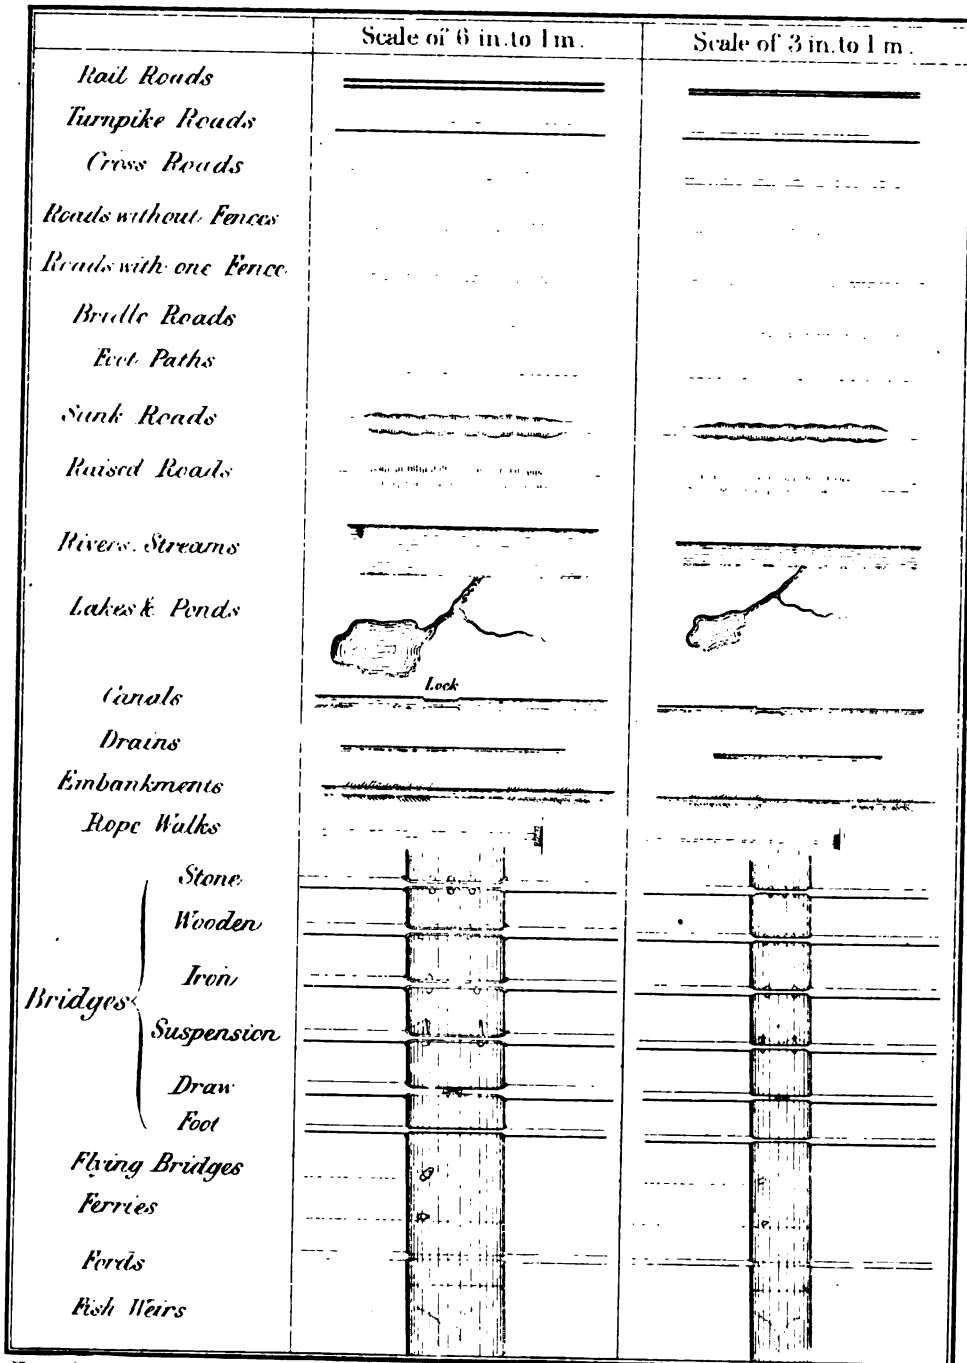 Scale of 6 in. to 1 m.
Scale of 3 in. to 1 m.
Rail Roads
Turnpike Roads
Cross Roads
Roads without Fences
Roads with one Fence
Bridle Roads
Foot Paths
Sunk Roads
Raised Roads
Rivers. Streams
Lakes & Ponds
Lock
Canals
Drains
Embankments
Rope Walks
Bridges
Stone
Wooden
Iron
Suspension
Draw
Foot
Flying Bridges
Ferries
Fords
Fish Weirs